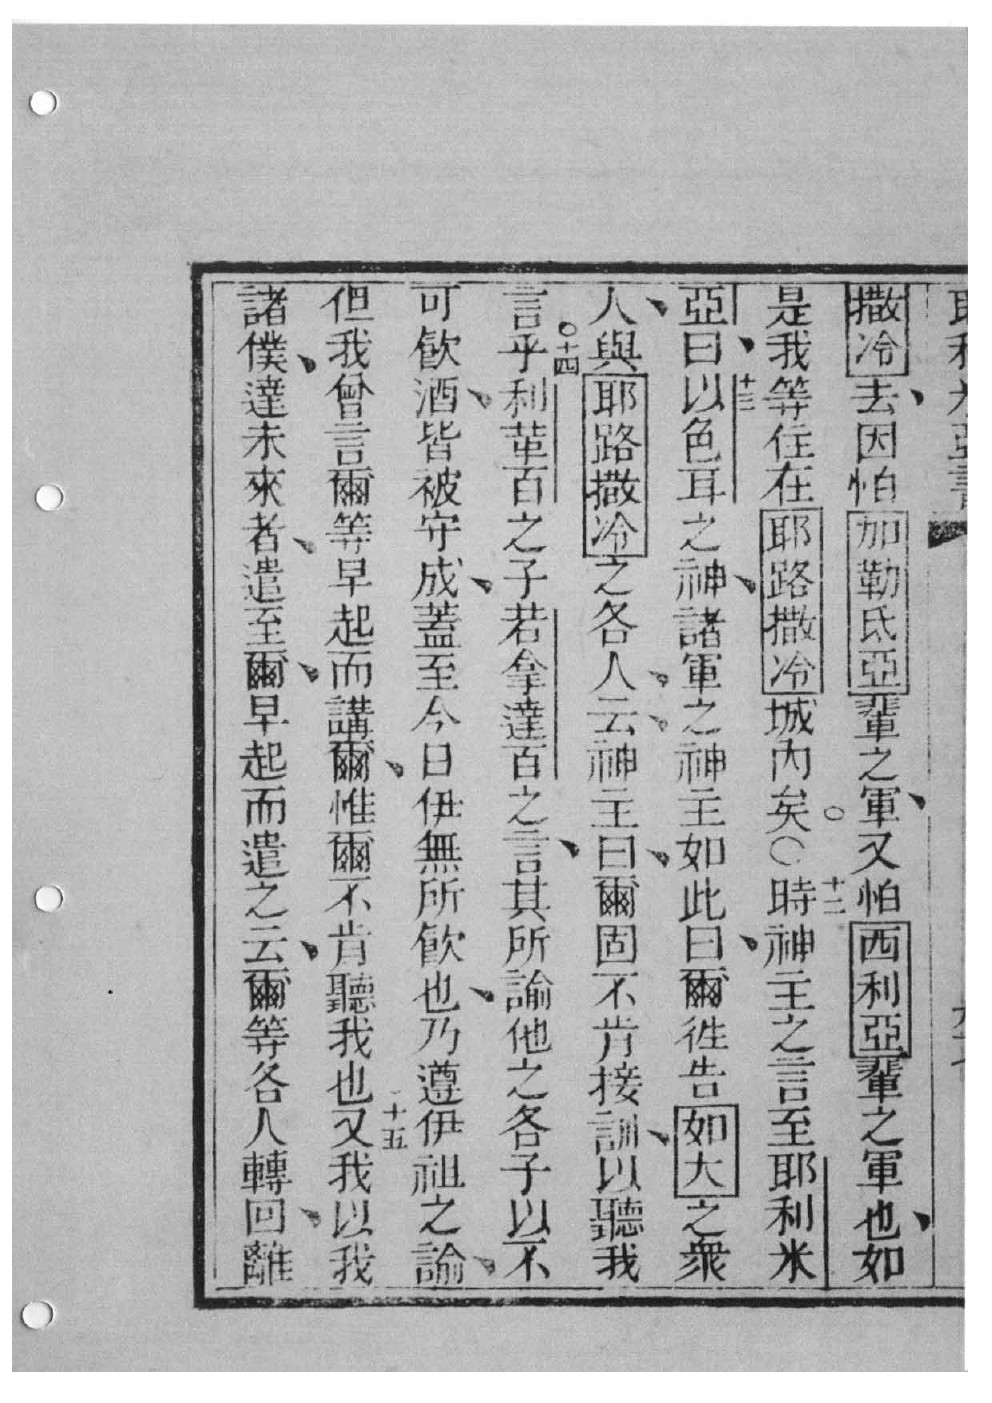 耶利米亞書
撒冷去、因怕加勒氐亞輩之軍、又怕西利亞輩之軍也、如
是我等住在耶路撒冷城內矣。○十二時神主之言至耶利米
亞曰、十三以色耳之神、諸軍之神主如此曰、爾徃告如大之衆
人、與耶路撒冷之各人、云、神主曰、爾固不肯接訓、以聽我
言乎。十四利葷百之子若拿達百之言、其所諭他之各子以不
可飲酒、皆被守成、蓋至今日伊無所飲也、乃遵伊祖之諭、
但我曾言爾等早起而講爾、惟爾不肯聽我也。十五又我以我
諸僕、達未來者、遣至爾、早起而遣之云、爾等各人轉回、離